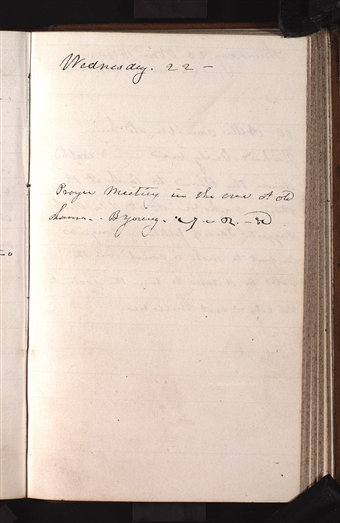 Wednesday. 22 -
Prayer Meeting in the eve at old
hams. - B Young.